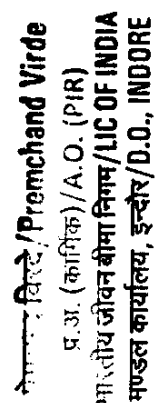 विरदे/Premchand Virde
प्र.अ. (कार्मिक)/A.O. (PIR)
भारतीय जीवन बीमा निगम/LIC OF INDIA
मण्डल कार्यालय, इन्दौर/D.O., INDORE